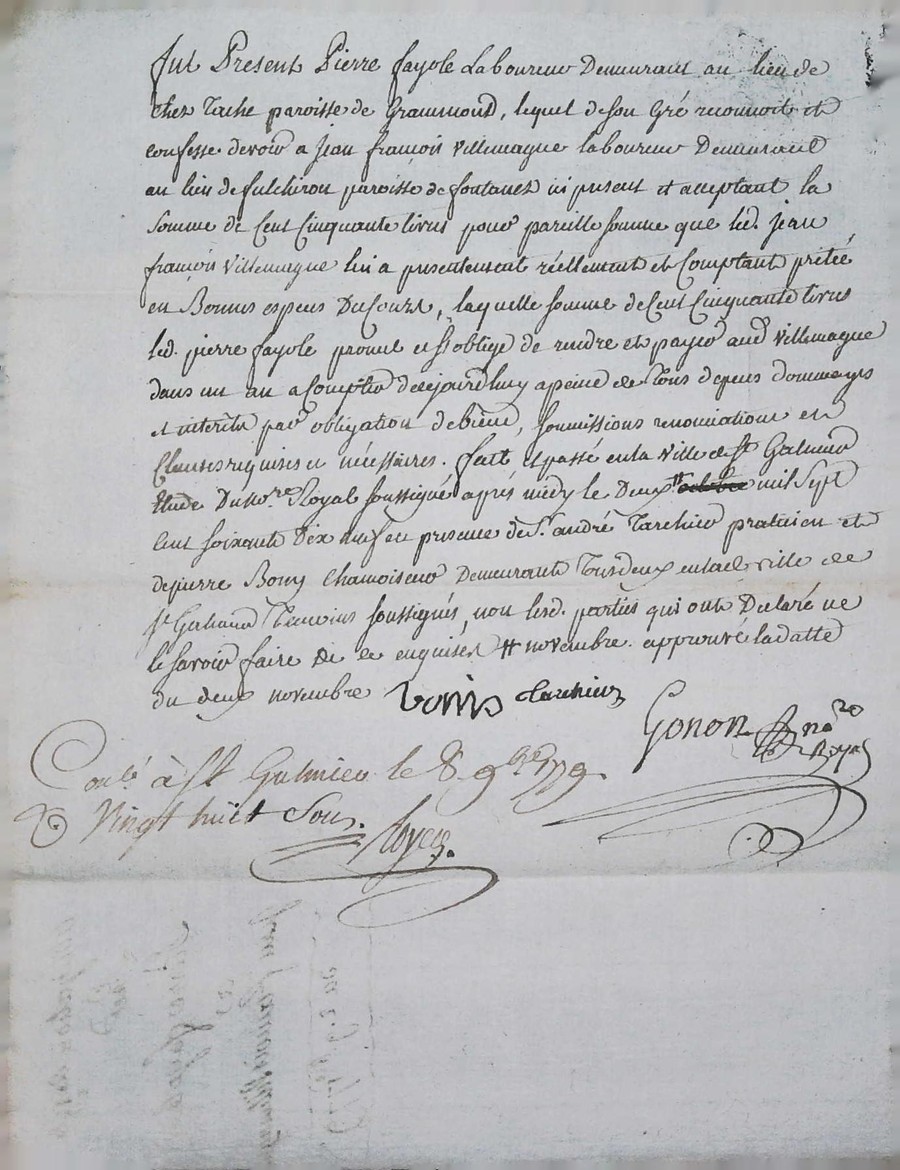 fut Present Pierre fayole Laboureur Demeurant au lieu de
chez Tache paroisse de Grammond, lequel de son Gré reconnoit et
confesse devoir a Jean françois Villemagne laboureur Demeurant
au lieu de fulchiron paroisse de fontanes ici present et acceptant la
Somme de Cent Cinquante livres pour pareille somme que led. jean
françois Villemagne lui a presentement réellement et Comptant prêtée
en Bonnes especes DuCours, laquelle somme de Cent Cinquante livres
led. pierre fayole promet et s'oblige de rendre et payer aud Villemagne
dans un an a Compter decejourdhuy apeine de Tous depens dommages
et interets par obligation de biens, soumissions renonciations et
Clauses requises et nécessaires. fait et passé en la Ville de St Galmier
Etude Du Nore. Royal soussigné après midy le Deux # octobre mil Sept
Cent soixante Dix neuf en presence de Sr. andré Tarchier praticien et
de pierre Bony Chamoiseur Demeurants Tous deux en lad ville de
St Galmier Temoins soussignés, non lesd. parties qui ont Declaré ne
le savoir faire de ce enquises # novembre. approuvé la datte
du deux novembre Bonis Tarchier
Gonon no re
Royal
Conlé à St Galmier le 8 9bre 1779.
R Vingt huit Sous. Royer.